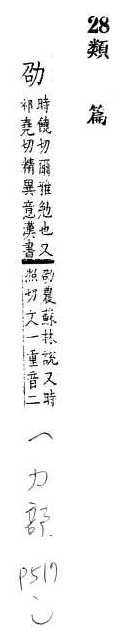 28類篇
劭
時饒切爾雅勉也又
祁堯切精異意漢書
劭農蘇林說又時
照切文一重音二
(力部 p517)